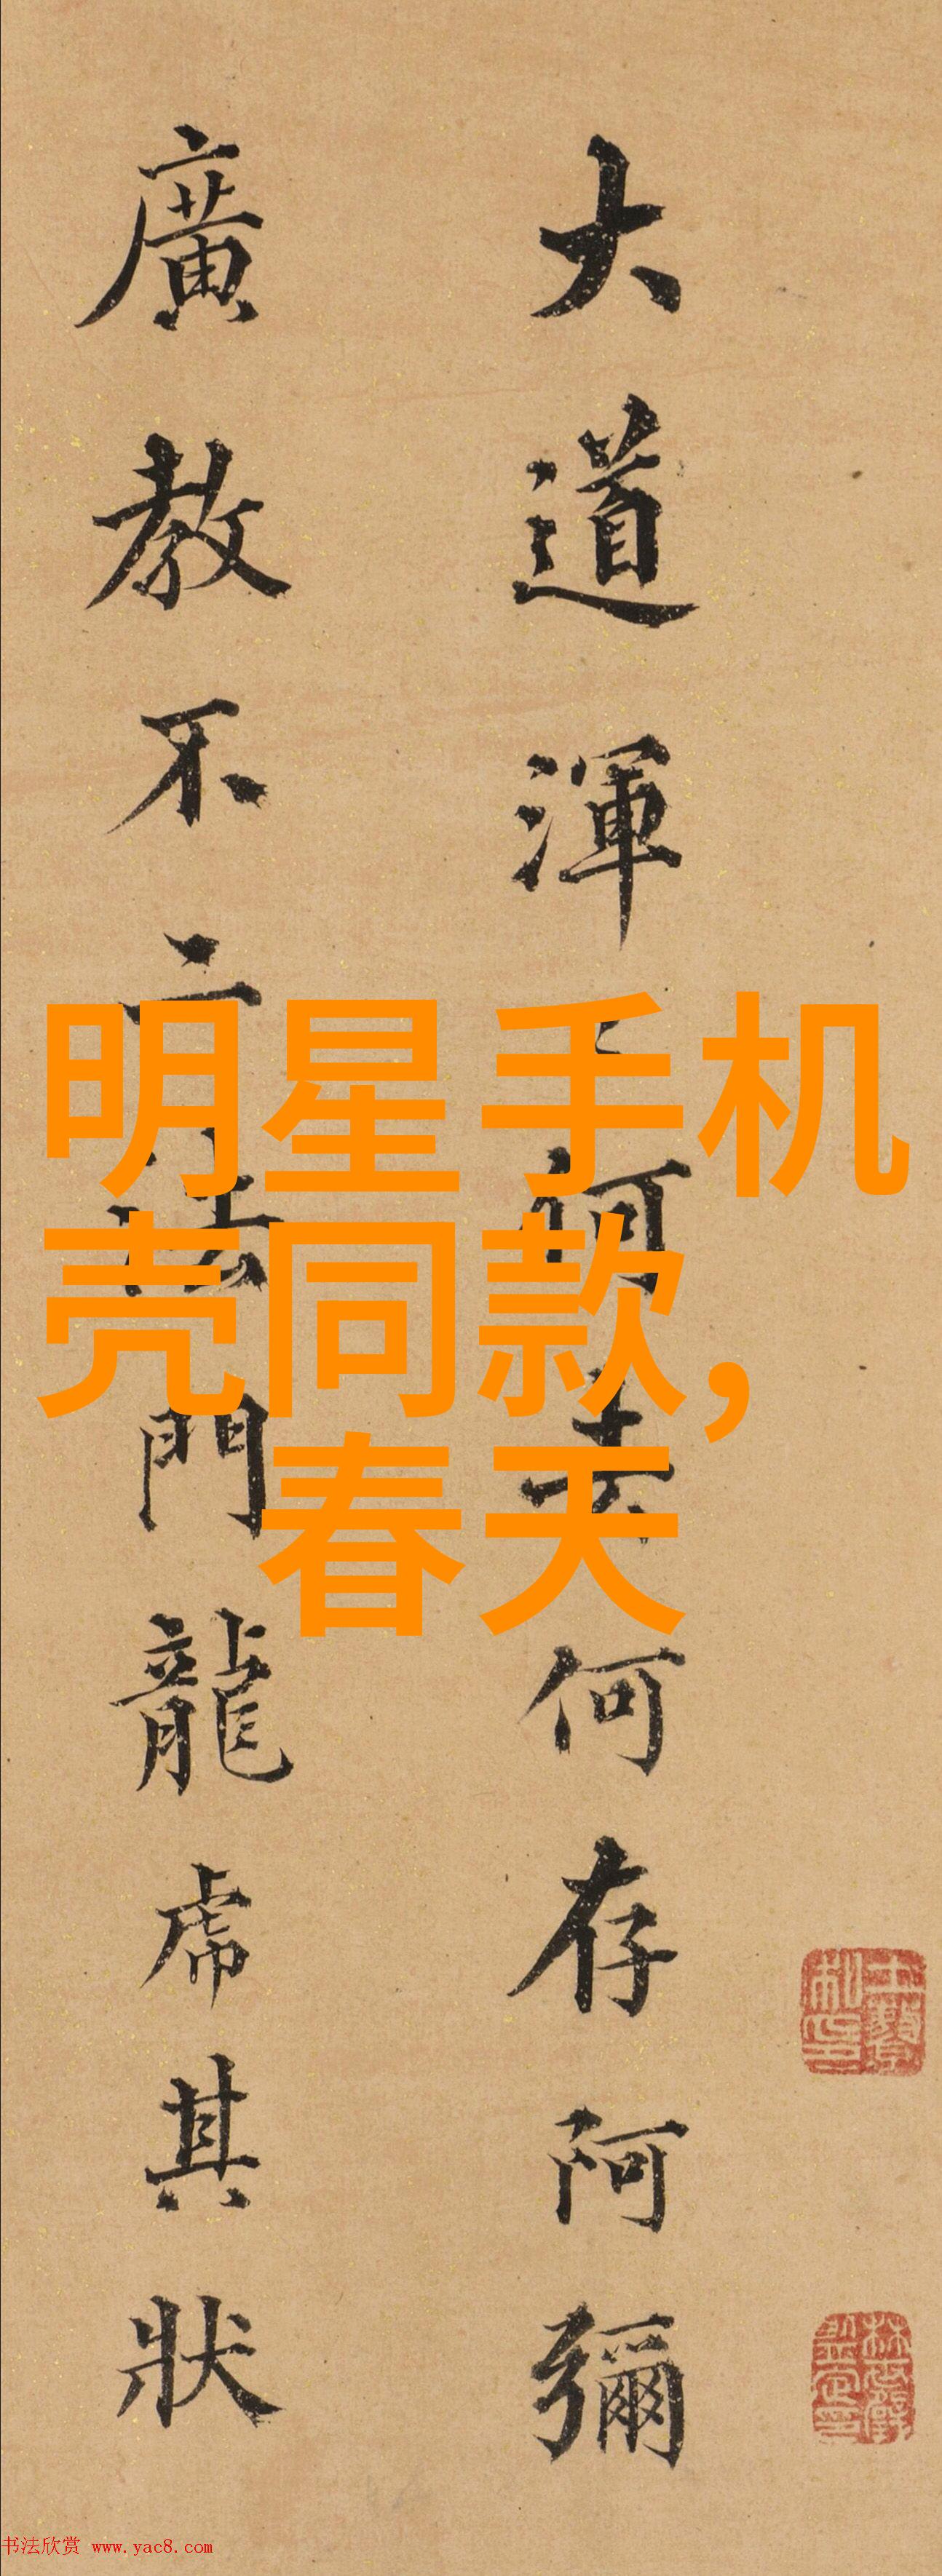 大道渾〻何去何存阿彌
廣教不二法門龍虎其狀
明星手机
壳同款，
春天
书法欣赏 www.yac8.com